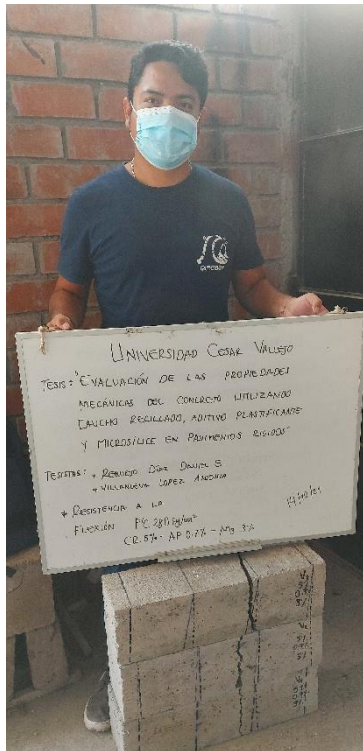 QUIKSILVER
UNIVERSIDAD CESAR VALLEJO
TESIS: "EVALUACIÓN DE LAS PROPIEDADES
MECÁNICAS DEL CONCRETO UTILIZANDO
CAUCHO RECICLADO, ADITIVO PLASTIFICANTE
Y MICROSÍLICE EN PAVIMENTOS RIGIDOS"
TESISTAS: • REQUEJO DÍAZ DANIEL E.
• VILLANUEVA LOPEZ
* RESISTENCIA A LA
FLEXIÓN F'C 280 kg/cm²
CR 5% - AP 0.7% - Ms 3%